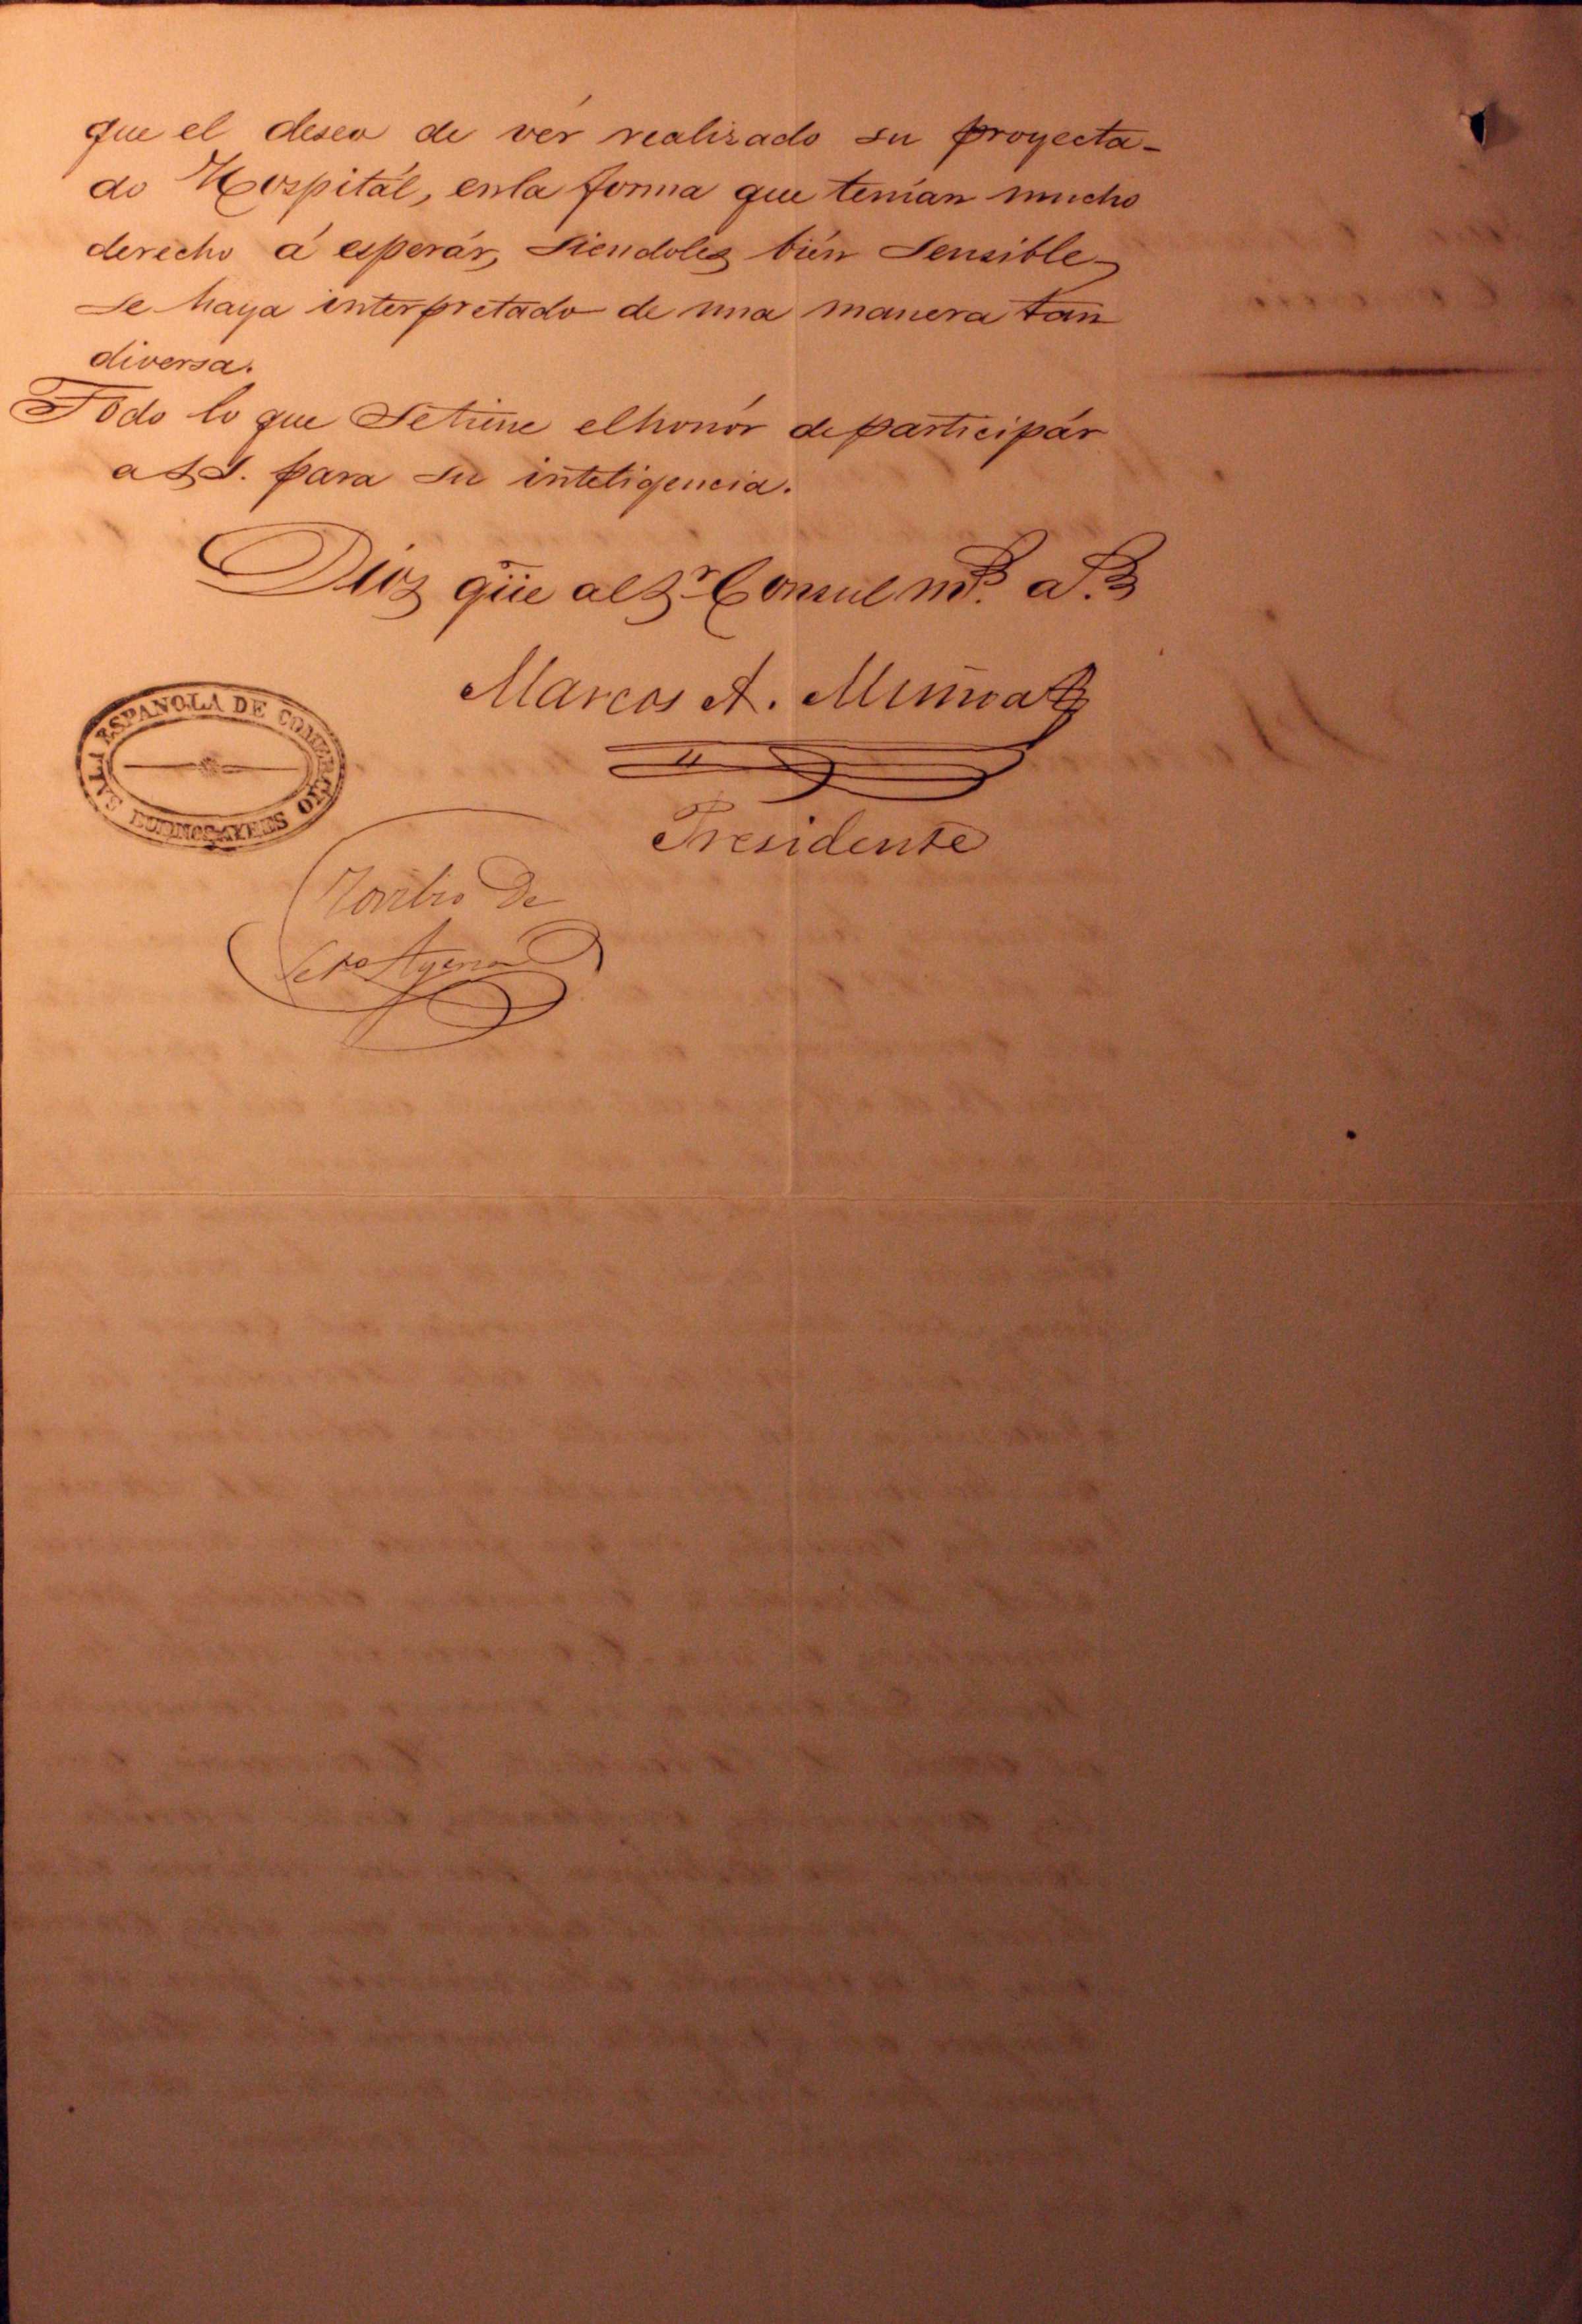 que el deseo de vér realizado su proyecta-
do Hospitál, en la forma que tenían mucho
derecho á esperár, siendoles bién sensible
se haya interpretado de una manera tan
diversa.
Todo lo que se tiene el honór de participár
a S.S. para su inteligencia.
Dios gũe al Sr Consul ms. as.
Marcos A. Muñoa
Presidente
SALA ESPAÑOLA DE COMERCIO
BUENOS AYRES
Toribio de
Ayerza
Seto